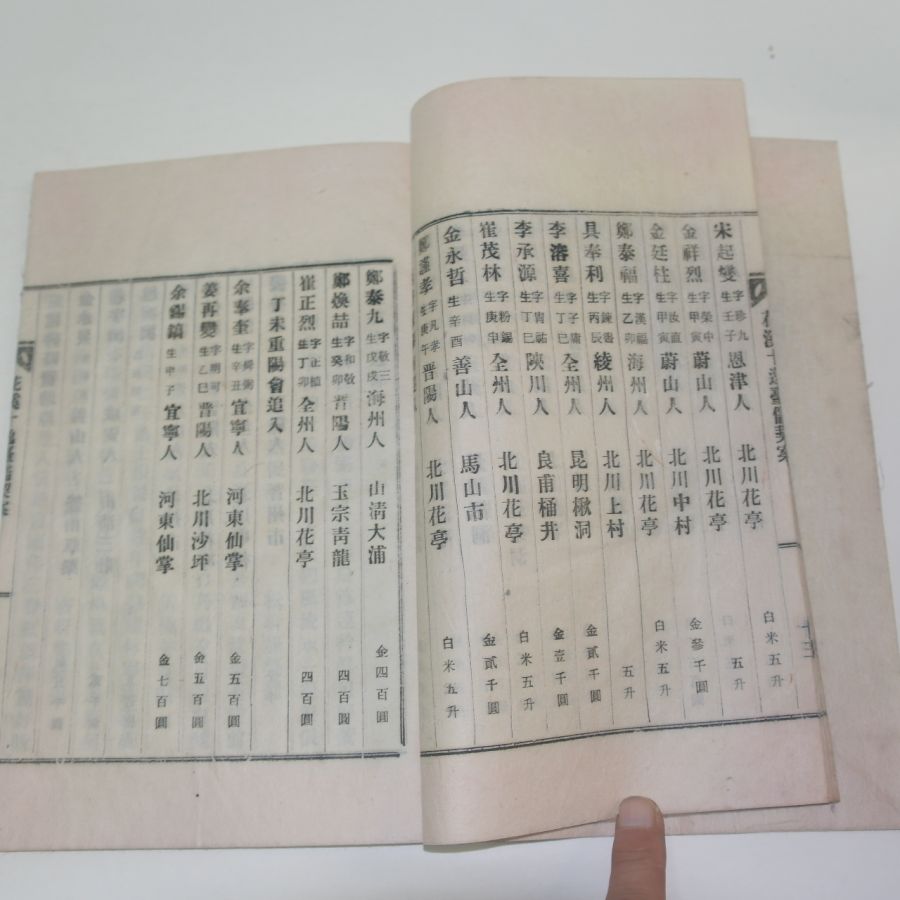 宋起燮 字移九 生壬子 恩津人 北川花亭 白米五升
金祥烈 字榮中 生甲寅 蔚山人 北川花亭 五升
金廷柱 字汝直 生甲寅 蔚山人 北川中村 金參千圓
鄭泰福 字漢福 生乙卯 海州人 北川花亭 白米五升
具奉利 生丙辰 綾州人 北川上村 五升
李溶喜 字子庸 生丁巳 全州人 昆明楸洞 金貳千圓
李承源 生丁巳 陜川人 良甫桶井 金壹千圓
崔茂林 字粉錫 生庚申 全州人 北川花亭 白米五升
金永哲 生辛酉 善山人 馬山市 金貳千圓
鄭謹孝 字凡孝 生庚午 晋陽人 北川花亭 白米五升
鄭泰九 字敬三 生戊戌 海州人 山淸大浦 金四百圓
鄭煥喆 字和敬 生癸卯 晋陽人 玉宗靑龍 四百圓
崔正烈 字正植 生丁卯 全州人 北川花亭 四百圓
丁未重陽會追入
余奉奎 字舜弼 生辛丑 宜寧人 河東仙掌 金五百圓
姜再變 字明可 生乙巳 晋陽人 北川沙坪 金五百圓
余錫鎬 生甲子 宜寧人 河東仙掌 金七百圓